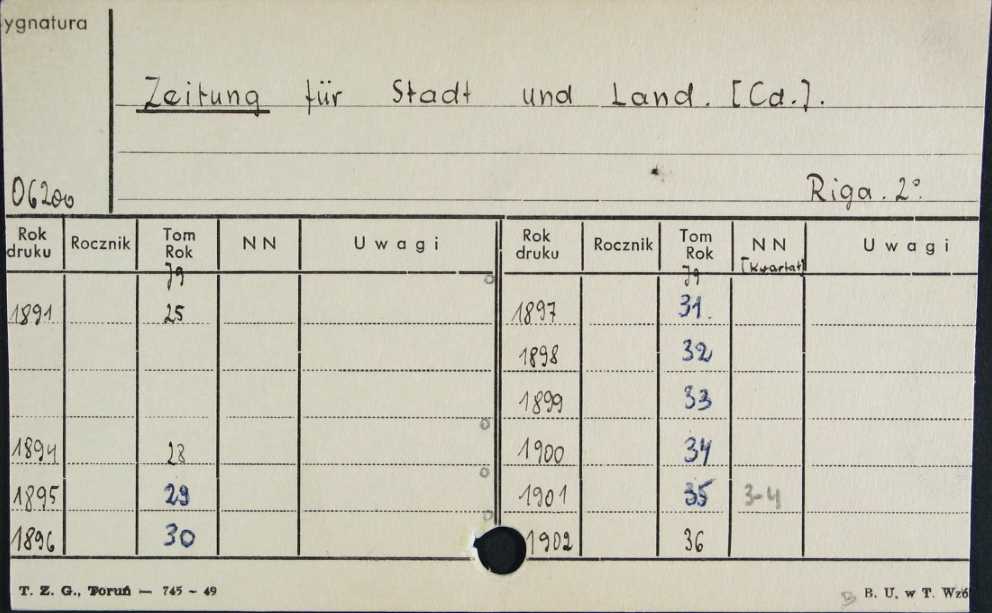 ygnatura
Zeitung für Stadt und Land. [Cd.].
06200
Riga. 2°
Rok druku Rocznik Tom Rok NN Uwagi Rok druku Rocznik Tom Rok NN Uwagi
Jg Jg [Kwartał]
1891 25 1897 31.
1898 32
1899 33
1894 28 1900 34
1895 29 1901 35 3-4
1896 30 1902 36
T. Z. G., Toruń — 745 - 49 B. U. w T. Wzó